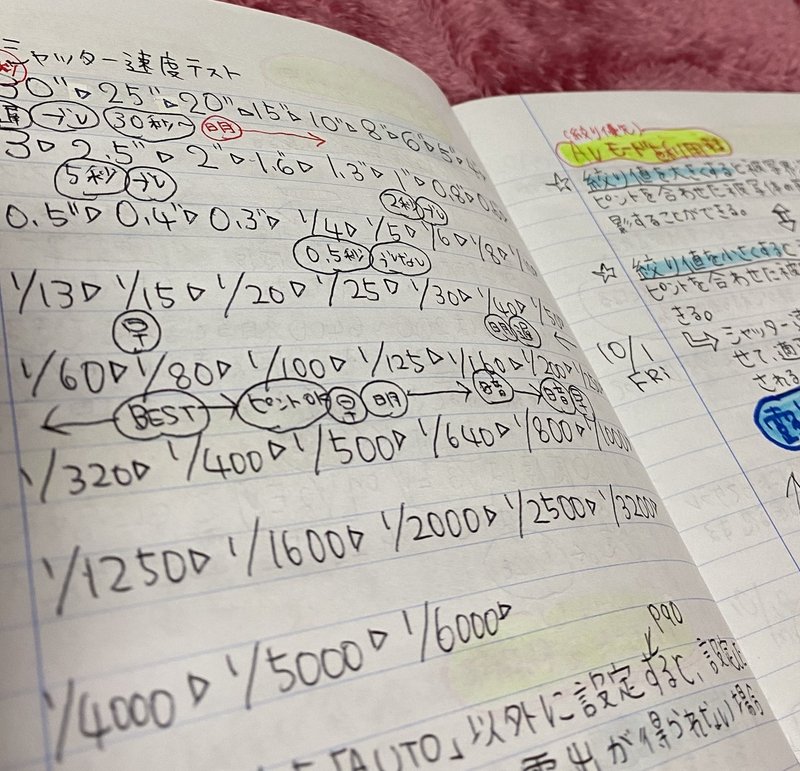 シャッター速度テスト
30"▷25"▷20"▷15"▷10"▷8"▷6"▷5"▷4
遅 ブレ 30秒 明
3▷2.5"▷2"▷1.6"▷1.3"▷1"▷0.8"▷0.6
5秒 ブレ 2秒 ブレ
0.5"▷0.4"▷0.3"▷1/4▷1/5▷1/6▷1/8▷1/10
0.5秒 ブレない
1/13▷1/15▷1/20▷1/25▷1/30▷1/40▷1/50
早 明 遅
1/60▷1/80▷1/100▷1/125▷1/160▷1/200▷
BEST ピントOK 早 明 暗 暗 早
1/320▷1/400▷1/500▷1/640▷1/800▷1/1000
1/1250▷1/1600▷1/2000▷1/2500▷1/3200▷
1/4000▷1/5000▷1/6000▷
P90
「AUTO」以外に設定すると、設定
露出が得られない場合
(絞り優先)
AVモード
☆絞り値を大きくすると被写
ピントを合わせた被写体の
影することができる。
☆絞り値を小さくすると
ピントを合わせた被
きる。
シャッター速
せて、適
される
10/1
FRi